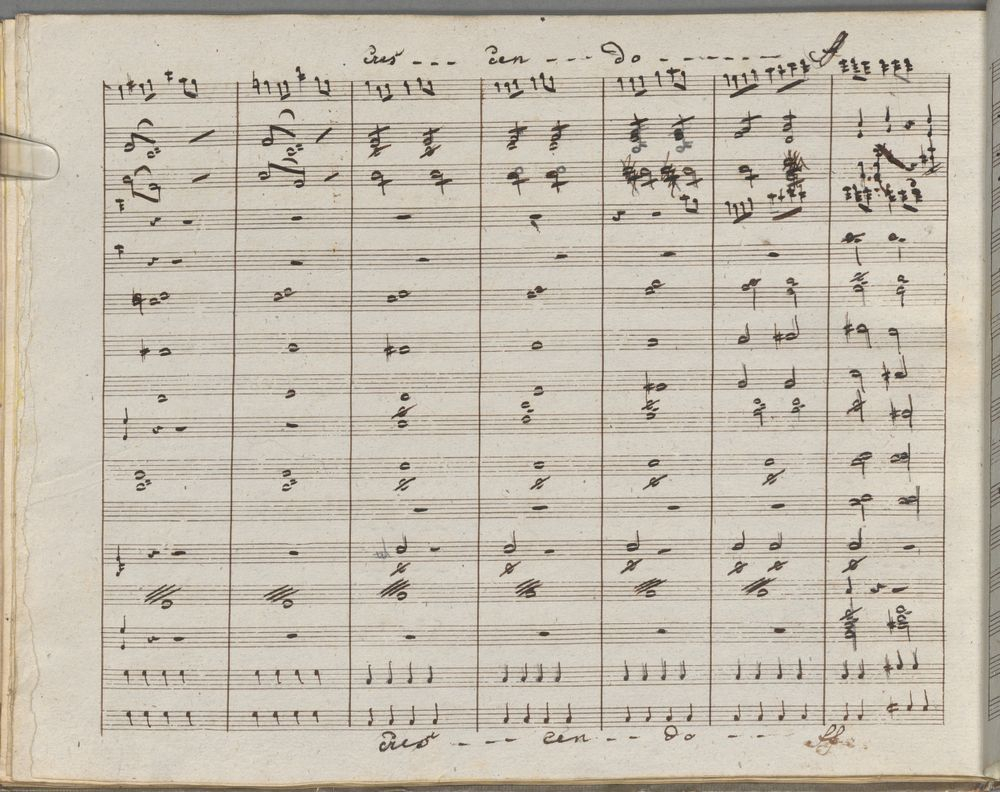 Cres - - - cen - - - do - - - - - - -
Cres - - - cen - - do - - - -